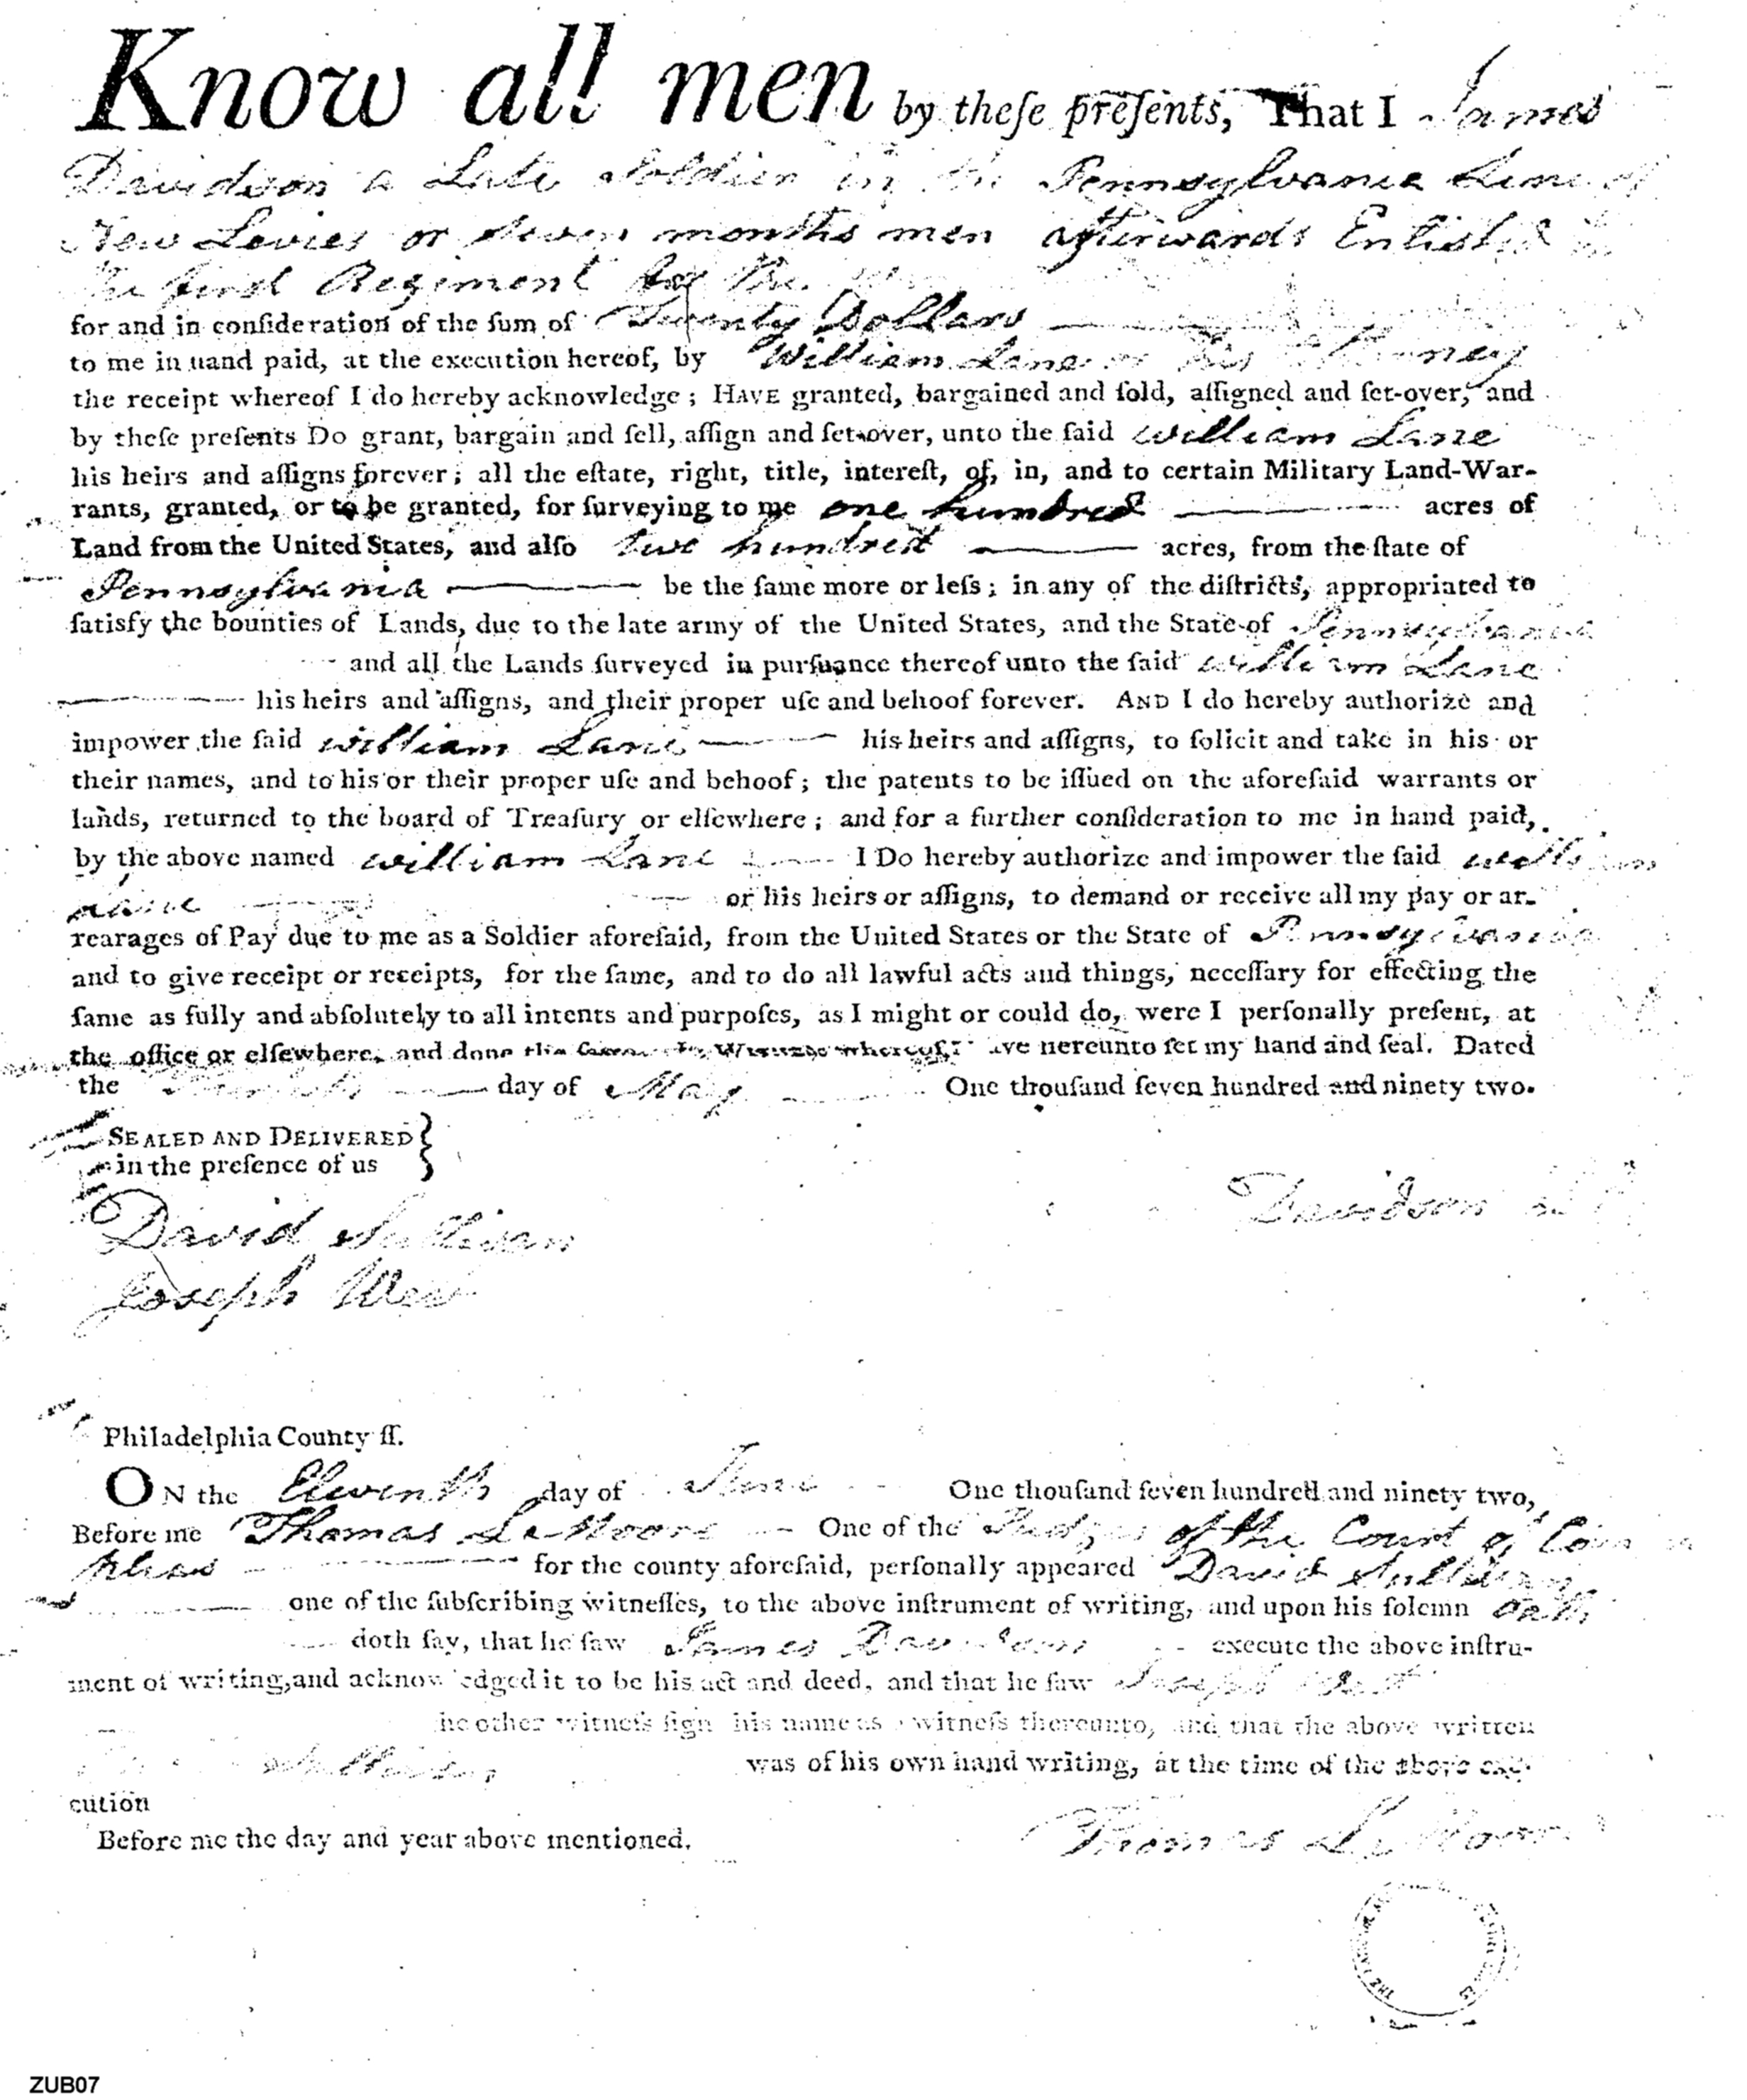 Know all men by theſe preſents, That I James
Davidson a Late Soldier in the Pennsylvania Line of
New Levies or seven months men afterwards Enlisted in
the first Regiment for the
for and in conſideration of the ſum of Twenty Dollars
to me in hand paid, at the execution hereof, by William Lane or his Attorney
the receipt whereof I do hereby acknowledge; HAVE granted, bargained and ſold, aſſigned and ſet-over, and
by theſe preſents Do grant, bargain and ſell, aſſign and ſet-over, unto the ſaid William Lane
his heirs and aſſigns forever; all the eſtate, right, title, intereſt, of, in, and to certain Military Land-War-
rants, granted, or to be granted, for ſurveying to me one hundred acres of
Land from the United States, and alſo two hundred acres, from the ſtate of
Pennsylvania be the ſame more or leſs; in any of the diſtricts, appropriated to
ſatisfy the bounties of Lands, due to the late army of the United States, and the State of Pennsylvania
and all the Lands ſurveyed in purſuance thereof unto the ſaid William Lane
his heirs and aſſigns, and their proper uſe and behoof forever. AND I do hereby authorize and
impower the ſaid William Lane his heirs and aſſigns, to ſolicit and take in his or
their names, and to his or their proper uſe and behoof; the patents to be iſſued on the aforeſaid warrants or
lands, returned to the board of Treaſury or elſewhere; and for a further conſideration to me in hand paid,
by the above named William Lane I Do hereby authorize and impower the ſaid William
Lane or his heirs or aſſigns, to demand or receive all my pay or ar-
rearages of Pay due to me as a Soldier aforeſaid, from the United States or the State of Pennsylvania
and to give receipt or receipts, for the ſame, and to do all lawful acts and things, neceſſary for effecting the
ſame as fully and abſolutely to all intents and purpoſes, as I might or could do, were I perſonally preſent, at
the office or elſewhere, and done the ſame. In Witneſs whereof, I have hereunto ſet my hand and ſeal. Dated
the day of May One thouſand ſeven hundred and ninety two.
SEALED AND DELIVERED
in the preſence of us
Davidson
David Sullivan
Joseph
Philadelphia County ſſ.
ON the Eleventh day of June One thouſand ſeven hundred and ninety two,
Before me Thomas L Moore One of the Judges of the Court of Common
pleas for the county aforeſaid, perſonally appeared David Sullivan
one of the ſubſcribing witneſſes, to the above inſtrument of writing, and upon his ſolemn oath
doth ſay, that he ſaw James Davidson execute the above inſtru-
ment of writing, and acknowledged it to be his act and deed, and that he ſaw Joseph
the other witneſs ſign his name as a witneſs thereunto, and that the above written
Sullivan was of his own hand writing, at the time of the above exe-
cution
Before me the day and year above mentioned.
Thomas L Moore
ZUB07